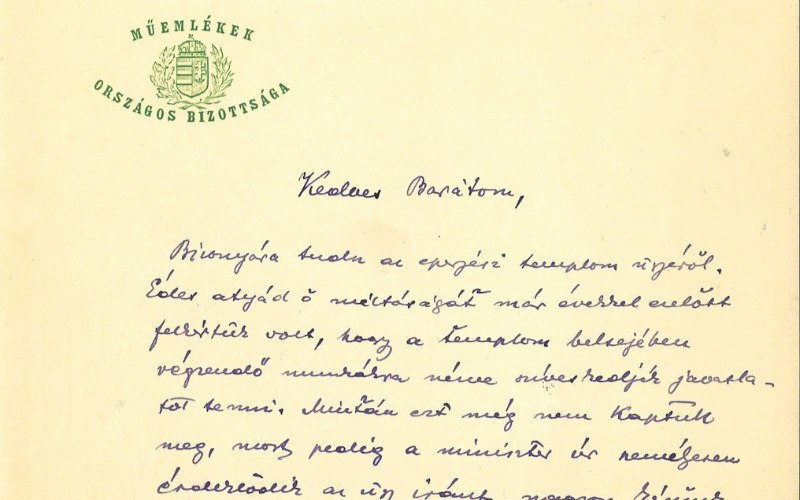 MŰEMLÉKEK
ORSZÁGOS BIZOTTSÁGA
Kedves Barátom,
Bizonyára tudsz az eperjesi templom ügyéről.
Édes atyád ő méltóságát már évekkel ezelőtt
felkértük volt, hogy a templom belsejében
végzendő munkákra nézve szíveskedjék javasla-
tot tenni. Miután ezt még nem kaptuk
meg, most pedig a miniszter úr személyesen
érdeklődik az ügy iránt, nagyon